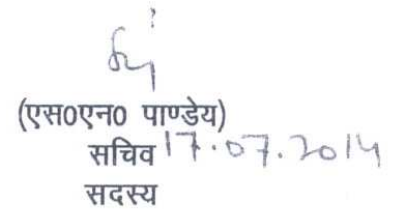 (एस0एन0 पाण्डेय)
सचिव 17.07.2014
सदस्य